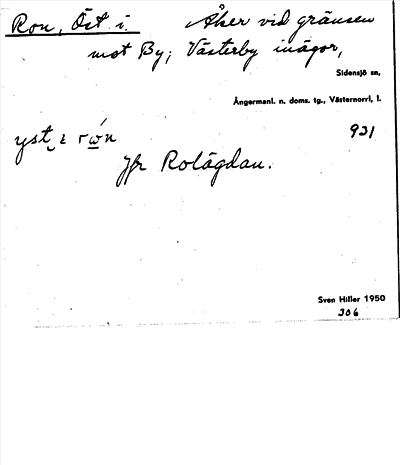 Ron, Öst i. Åker vid gränsen
mot By; Västerby inägor,
Sidensjö sn,
Ångermanl. n. doms. tg., Västernorrl, l.
931
yst ɩ rώn
Jfr Rolägdan.
Sven Hiller 1950
306